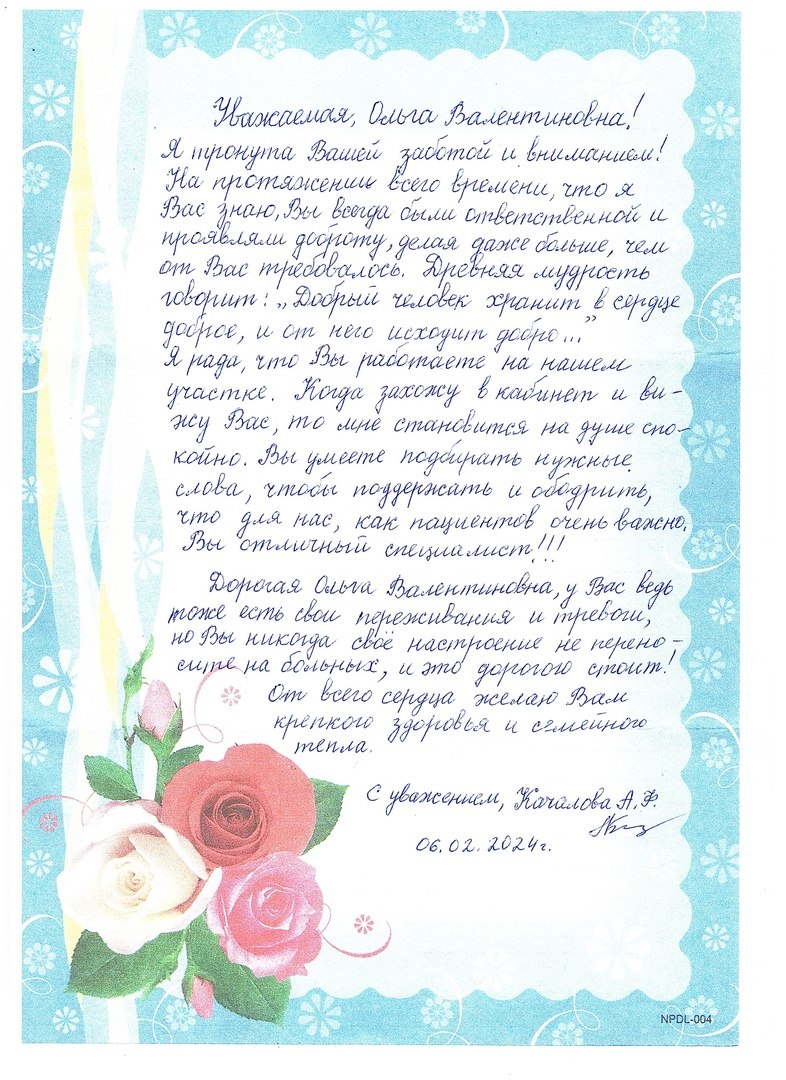 Уважаемая, Ольга Валентиновна!
Я тронута Вашей заботой и вниманием!
На протяжении всего времени, что я
Вас знаю, Вы всегда были ответственной и
проявляли доброту, делая даже больше, чем
от Вас требовалось. Древняя мудрость
говорит: „Добрый человек хранит в сердце
доброе, и от него исходит добро..."
Я рада, что Вы работаете на нашем
участке. Когда захожу в кабинет и ви-
жу Вас, то мне становится на душе спо-
койно. Вы умеете подбирать нужные
слова, чтобы поддержать и ободрить,
что для нас, как пациентов очень важно.
Вы отличный специалист!!!
Дорогая Ольга Валентиновна, у Вас ведь
тоже есть свои переживания и тревоги,
но Вы никогда своё настроение не перено-
сите на больных, и это дорогою стоит!
От всего сердца желаю Вам
крепкого здоровья и семейного
тепла.
С уважением, Качалова А.Ф.
06.02.2024г.
NPDL-004